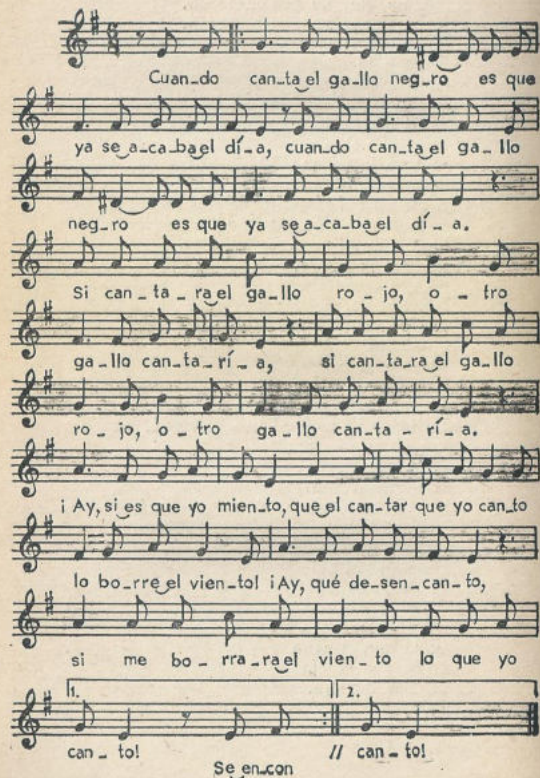 Cuan_do can_ta el ga_llo neg_ro es que
ya se a_ca_ba el dí_a, cuan_do can_ta el ga_llo
neg_ro es que ya se a_ca_ba el dí_a.
Si can_ta_ra el ga_llo ro_jo, o_tro
ga_llo can_ta_rí_a, si can_ta_ra el ga_llo
ro_jo, o_tro ga_llo can_ta_rí_a.
¡Ay, si es que yo mien_to, que el can_tar que yo can_to
lo bo_rre el vien_to! ¡Ay, qué de_sen_can_to,
si me bo_rra_ra el vien_to lo que yo
1. 2.
can_to! // can_to!
Se en_con